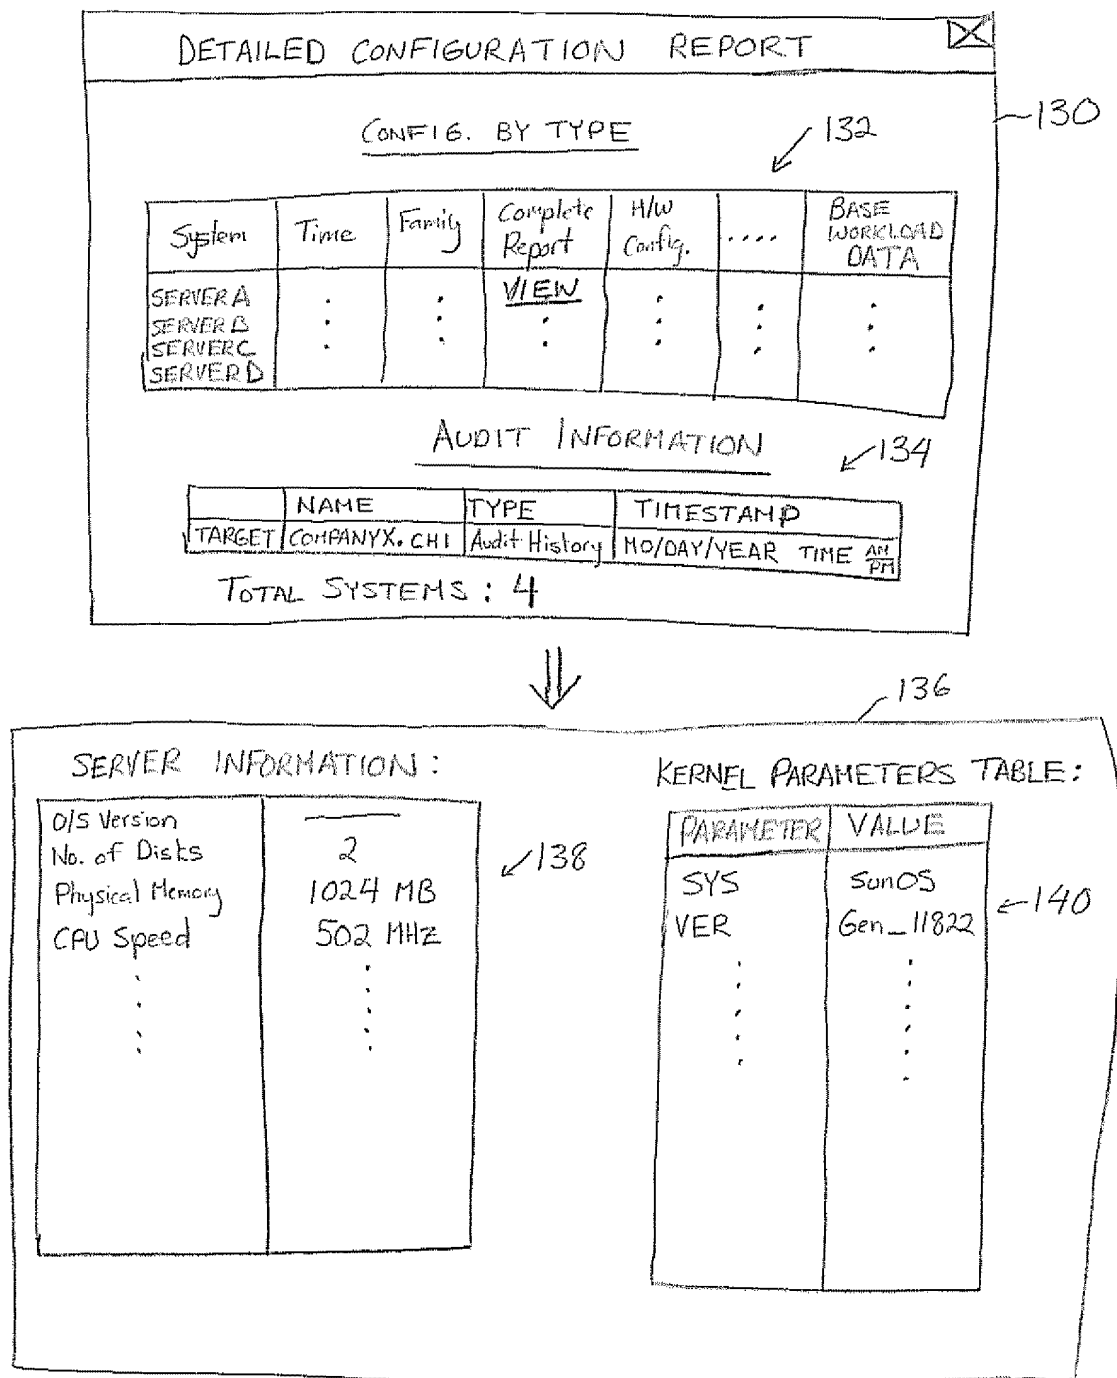 DETAILED CONFIGURATION REPORT
130
CONFIG. BY TYPE
132
System Time Family Complete Report H/W Config. .... BASE WORKLOAD DATA
SERVER A VIEW
SERVER B
SERVER C
SERVER D
AUDIT INFORMATION
134
NAME TYPE TIMESTAMP
TARGET COMPANYX.CHI Audit History MO/DAY/YEAR TIME AM/PM
TOTAL SYSTEMS : 4
136
SERVER INFORMATION :
KERNEL PARAMETERS TABLE :
O/S Version
No. of Disks 2
Physical Memory 1024 MB
CPU Speed 502 MHz
138
PARAMETER VALUE
SYS SunOS
VER Gen_11822
140